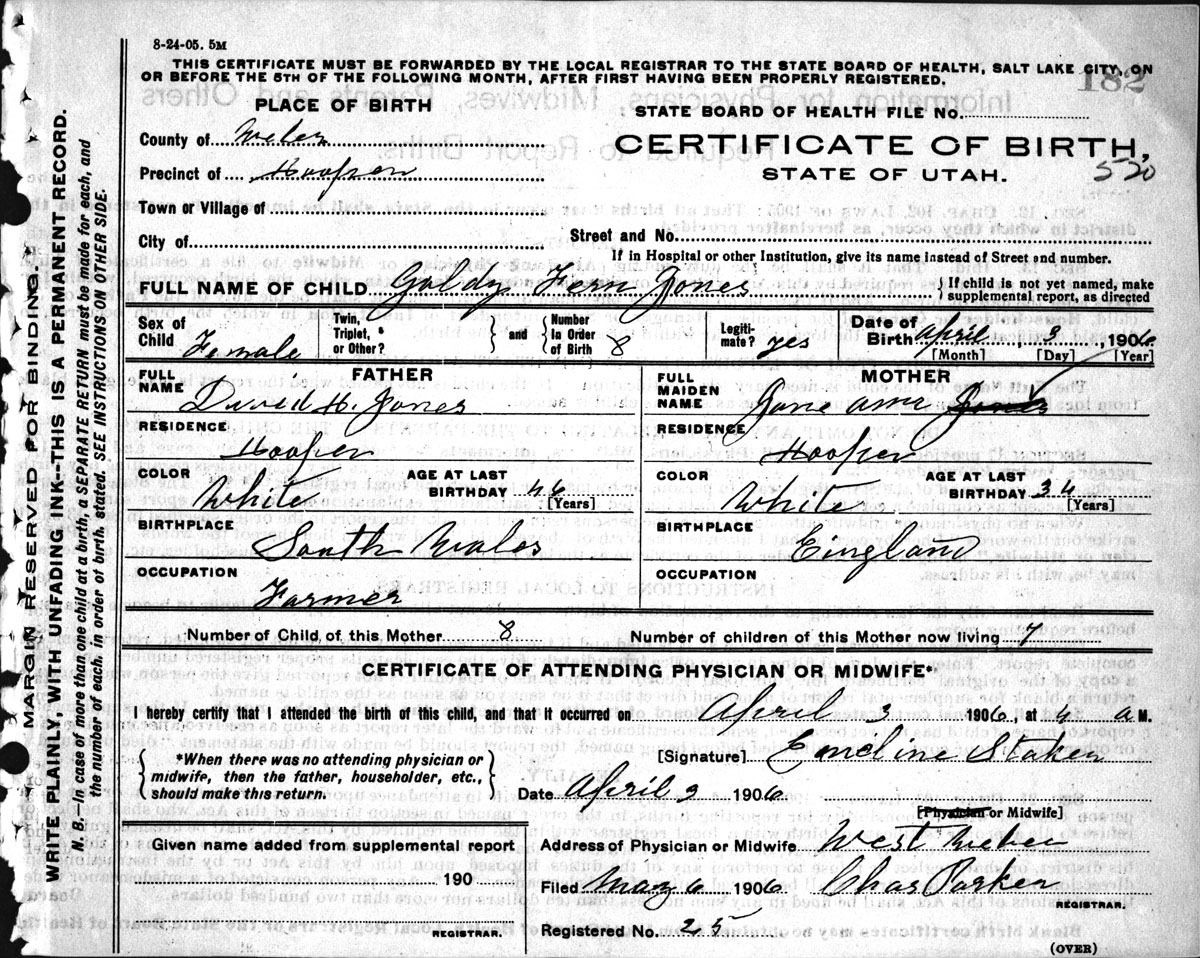 8-24-05. 5M
THIS CERTIFICATE MUST BE FORWARDED BY THE LOCAL REGISTRAR TO THE STATE BOARD OF HEALTH, SALT LAKE CITY, ON
OR BEFORE THE 5TH OF THE FOLLOWING MONTH, AFTER FIRST HAVING BEEN PROPERLY REGISTERED.
182
PLACE OF BIRTH
STATE BOARD OF HEALTH FILE No.
County of Weber
CERTIFICATE OF BIRTH,
Precinct of Hooper
STATE OF UTAH.
520
Town or Village of
City of
Street and No.
If in Hospital or other Institution, give its name instead of Street and number.
FULL NAME OF CHILD Goldy Fern Jones
If child is not yet named, make
supplemental report, as directed
Sex of Child Female
Twin, Triplet, or Other? and Number In Order of Birth 8
Legiti-mate? yes
Date of Birth April 3, 1906
[Month] [Day] [Year]
FATHER
FULL NAME
David H. Jones
RESIDENCE
Hooper
COLOR
White
AGE AT LAST BIRTHDAY 46
[Years]
BIRTHPLACE
South Wales
OCCUPATION
Farmer
MOTHER
FULL MAIDEN NAME
Jane Ame Jones
RESIDENCE
Hooper
COLOR
White
AGE AT LAST BIRTHDAY 34
[Years]
BIRTHPLACE
Eingland
OCCUPATION
Number of Child of this Mother 8 Number of children of this Mother now living 7
CERTIFICATE OF ATTENDING PHYSICIAN OR MIDWIFE*
I hereby certify that I attended the birth of this child, and that it occurred on April 3 1906, at 4 a M.
*When there was no attending physician or
midwife, then the father, householder, etc.,
should make this return.
[Signature] Emeline Staker
Date April 3 1906
[Physician or Midwife]
Given name added from supplemental report
190
REGISTRAR.
Address of Physician or Midwife West Weber
Filed May 6 1906 Chas Parker
REGISTRAR.
Registered No. 25
(OVER)
MARGIN RESERVED FOR BINDING.
WRITE PLAINLY, WITH UNFADING INK--THIS IS A PERMANENT RECORD.
N. B.—In case of more than one child at a birth, a SEPARATE RETURN must be made for each, and
the number of each, in order of birth, stated. SEE INSTRUCTIONS ON OTHER SIDE.